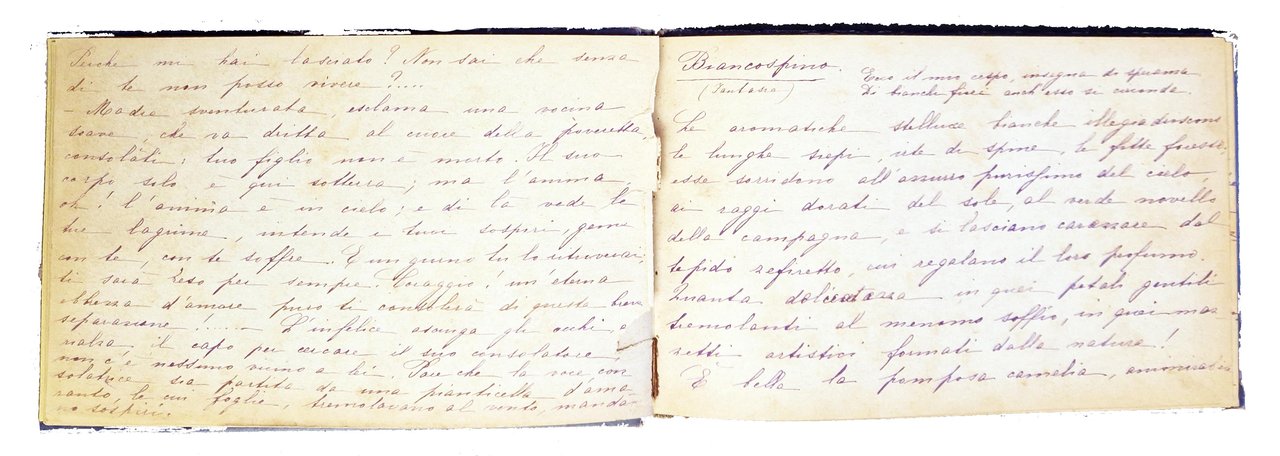 Perchè mi hai lasciato? Non sai che senza
di te non posso vivere?....
- Madre sventurata, esclama una vocina
soave, che va dritta al cuore della poveretta,
consolati; tuo figlio non è morto. Il suo
corpo solo è qui sotterra; ma l'anima,
oh! l'anima è in cielo; e di là vede le
tue lagrime, intende i tuoi sospiri, geme
con te, con te soffre. E un giorno tu lo ritroverai;
ti sarà reso per sempre. Coraggio! un'eterna
ebbrezza d'amore puro ti consolerà di questa breve
separazione ...... L'infelice asciuga gli occhi, e
rialza il capo per cercare il suo consolatore;
non c'è nessuno vicino a lei. Pare che la voce con
solatrice sia partita da una pianticella d'ama
ranto, le cui foglie, tremolavano al vento, manda
no sospiri.
Biancospino.
(Fantasia)
Ecco il mio cespo, insegna di speranza
Di bianchi fiori anch'esso si circonda.
Le aromatiche stelluzze bianche illeggiadriscono
le lunghe siepi, irte di spine, le fitte foreste;
esse sorridono all'azzurro purissimo del cielo,
ai raggi dorati del sole, al verde novello
della campagna, e si lasciano carezzare dal
tepido zefiretto, cui regalano il loro profumo.
Quanta delicatezza in quei petali gentili
tremolanti al menomo soffio, in quei maz
zetti artistici formati dalla natura!
È bella la pomposa camelia, ammirabile